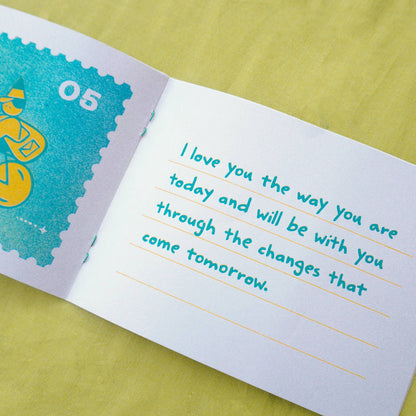 05
I love you the way you are
today and will be with you
through the changes that
come tomorrow.